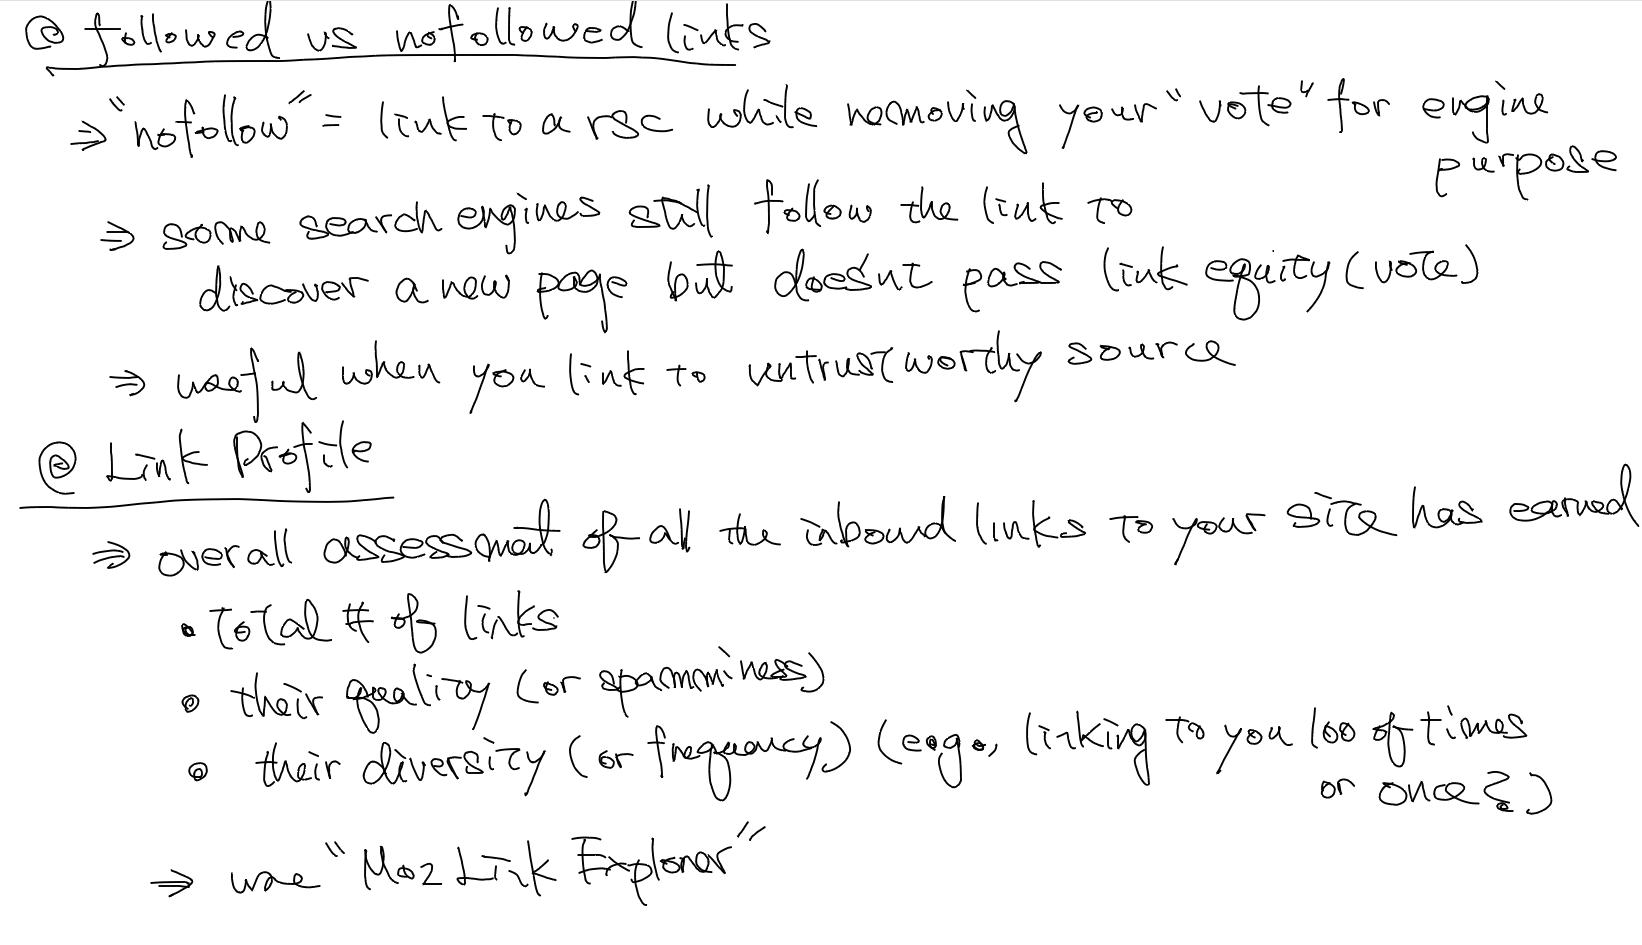 @ followed vs nofollowed links
⇒ "nofollow" = link to a rsc while removing your "vote" for engine
purpose
⇒ some search engines still follow the link to
discover a new page but doesn't pass link equity (vote)
⇒ useful when you link to untrustworthy source
@ Link Profile
⇒ overall assessment of all the inbound links to your site has earned
• Total # of links
• their quality (or spamminess)
• their diversity (or frequency) (e.g., linking to you 100 of times
or once?)
⇒ use "Moz Link Explorer"